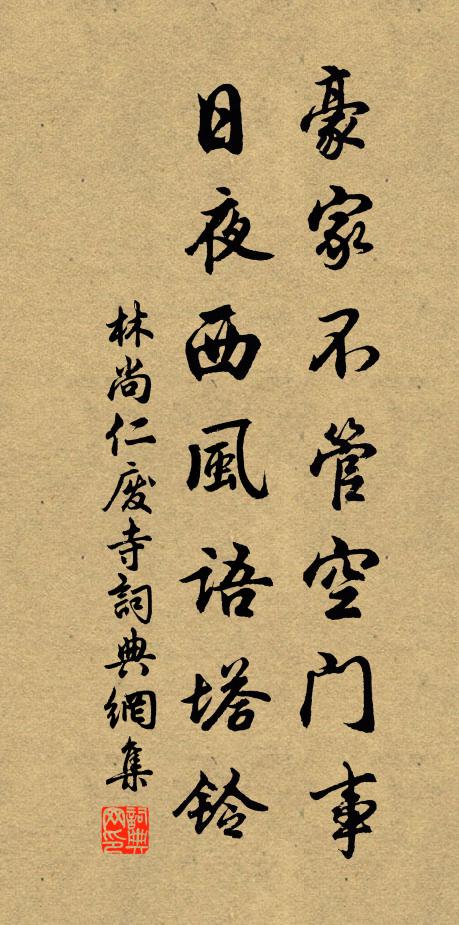 豪家不管空门事
日夜西風語塔鈴
林尚仁廢寺詞典網集
詞典网印